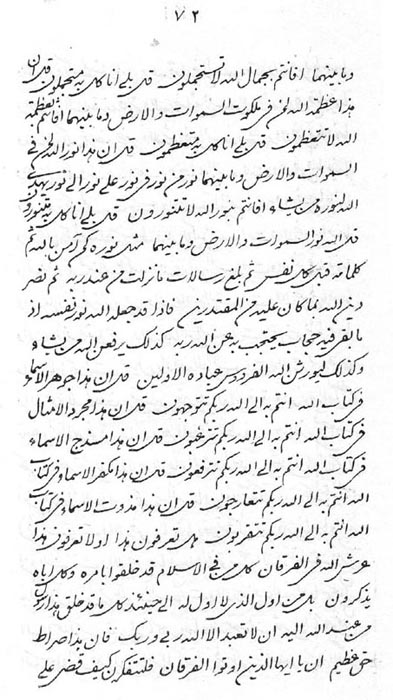 ٧٢
وما بينهما افانتم بجمال الله لا تستجملون قل بلى انا كل به مستجملون قل ان
هذا عظمة الله لحق في ملكوت السموات والارض وما بينهما افانتم بعظمة
الله لا تتعظمون قل بلى انا كل به متعظمون قل ان هذا نور الله لحق في
السموات والارض وما بينهما نور من نور في نور على نور الى نور يهدي
الله لنوره من يشاء افانتم بنور الله لا تتنورون قل بلى انا كل به متنورون
قل الله نور السموات والارض وما بينهما مثل نوره كمن آمن بالله ثم
كلماته قبل كل نفس ثم بلغ رسالات ما نزلت من عند ربه ثم نصر
دين الله بما كان عليه من المقتدرين فاذا قد جعله الله نور نفسه اذ
ما بقي فيه حجاب يحتجب به عن الله ربه كذلك يرفعن الله من يشاء
وكذلك ليورثن الله الفردوس عباده الاولين قل ان هذا جوهر الاسماء
في كتاب الله انتم به الى الله ربكم تتوجهون قل ان هذا مجرد الامثال
في كتاب الله انتم به الى الله ربكم ترغبون قل ان هذا سذج الاسماء
في كتاب الله انتم به الى الله ربكم ترفعون قل ان هذا الاسماء في كتاب
الله انتم به الى الله ربكم تتعارجون قل ان هذا ذوت الاسماء في كتاب
الله انتم به الى الله ربكم تتقربون هل تعرفون هذا او لا تعرفون هذا
عرش الله في الفرقان كل من في الاسلام قد خلقوا بامره وكل اياه
يذكرون بل من اول الذي لا اول له الى حينئذ كل ما قد خلق بهذا
من عند الله اليه ان لا تعبد الا الله ربي وربك فان هذا صراط
حق عظيم ان يا ايها الذين اوتوا الفرقان فلتتفكرن كيف قضي على